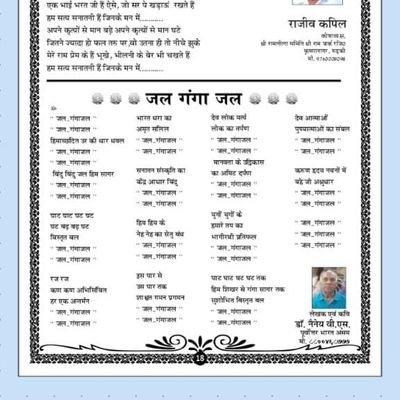 एक भाई भरत जी हैं ऐसे, जो सर पे खड़ाऊं रखते हैं
हम सत्य सनातनी हैं जिनके मन में............
अपने कृत्यों से मान बड़े अपने कृत्यों से मान घटे
जितने ज्यादा हो फल तरु पर, वो उतना ही तो नीचे झुके
मेरे राम प्रेम के हैं भूखे, भीलनी के बेर भी चखते हैं
हम सत्य सनातनी हैं जिनके मन में............
राजीव कपिल
कोषाध्यक्ष,
श्री रामलीला समिति श्री राम पार्क रजि०
कृष्णानगर, रुड़की
जल गंगा जल
" जल..गंगाजल "
" जल..गंगाजल "
हिमाच्छदित उर की धार धवल
" जल..गंगाजल "
बिंदु बिंदु जल हिम सागर
" जल..गंगाजल "
" जल..गंगाजल "
घाट घाट घट घट
घट बढ़ बढ़ घट
विस्तृत बल
" जल..गंगाजल "
" जल..गंगाजल "
रज रज
कण कण अभिसिंचित
हर एक अन्तर्मन
" जल..गंगाजल "
" जल..गंगाजल "
भारत धरा का
अमृत संगिनी
" जल..गंगाजल "
" जल..गंगाजल "
सनातन संस्कृति का
केंद्र आधार बिंदु
" जल..गंगाजल "
" जल..गंगाजल "
हिय हिय के
नेह नेह का सेतु बंध
" जल..गंगाजल "
" जल..गंगाजल "
इस पार से
उस पार तक
शाश्वत गमन प्रगमन
" जल..गंगाजल "
" जल..गंगाजल "
देव लोक मर्त्य
लोक का तर्पण
" जल..गंगाजल "
" जल..गंगाजल "
मानवता के उद्विकास
का अमिट दर्पण
" जल..गंगाजल "
" जल..गंगाजल "
युगों युगों के
हमारे तप का
भागीरथी प्रतिफल
" जल..गंगाजल "
" जल..गंगाजल "
घाट घाट घट घट तक
हिम शिखर से गंगा सागर तक
सुशोभित विस्तृत बल
" जल..गंगाजल "
" जल..गंगाजल "
देव आत्माओं
पुण्यात्माओं का संबल
" जल..गंगाजल "
" जल..गंगाजल "
करुण हृदय नयनों में
बहे जो अश्रुधार
" जल..गंगाजल "
" जल..गंगाजल "
" जल..गंगाजल "
" जल..गंगाजल "
लेखक एवं कवि
डॉ. नैनेय वी.एस.
पूर्वोत्तर भारत असम
18